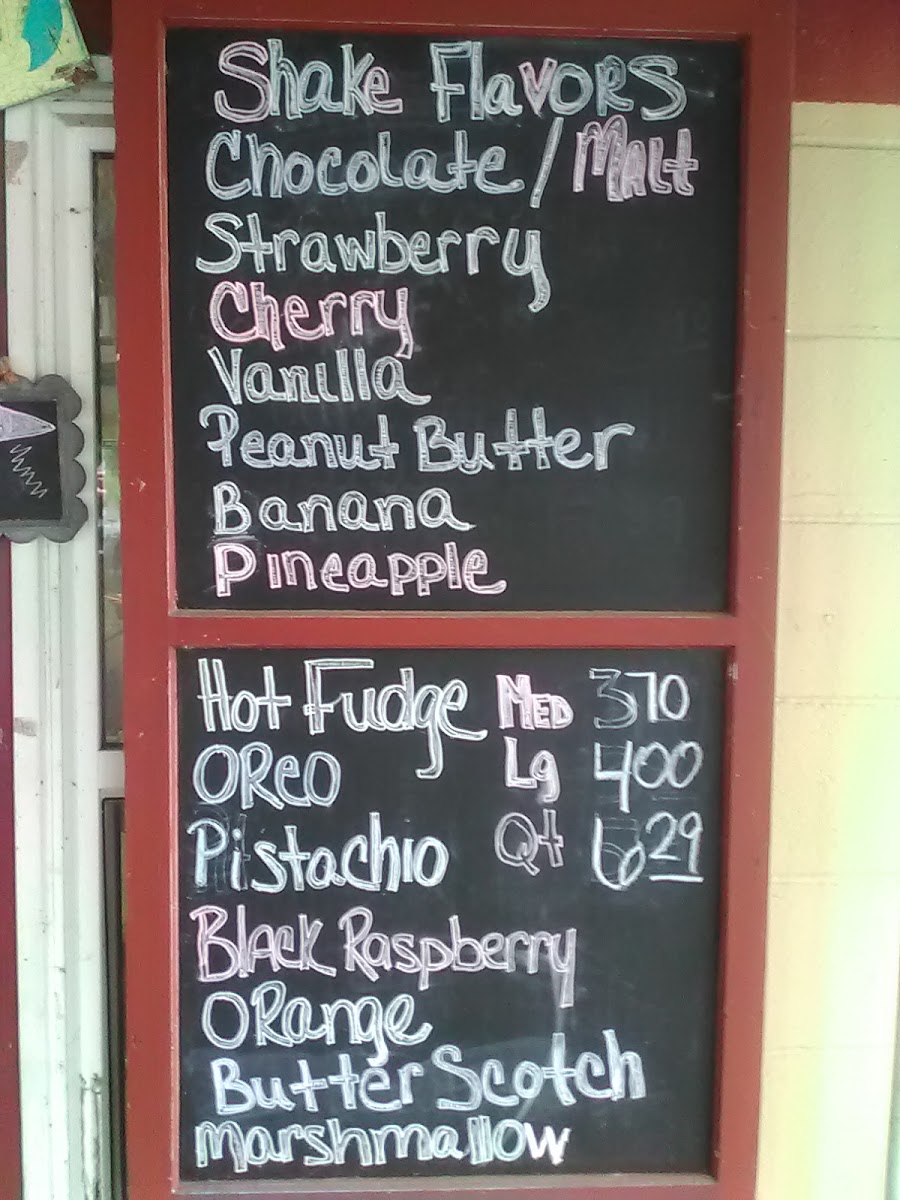 Shake Flavors
Chocolate / Malt
Strawberry
Cherry
Vanilla
Peanut Butter
Banana
Pineapple
Hot Fudge MED 370
OReO Lg 400
Pistachio Qt 629
Black Raspberry
ORange
Butter Scotch
marshmallow